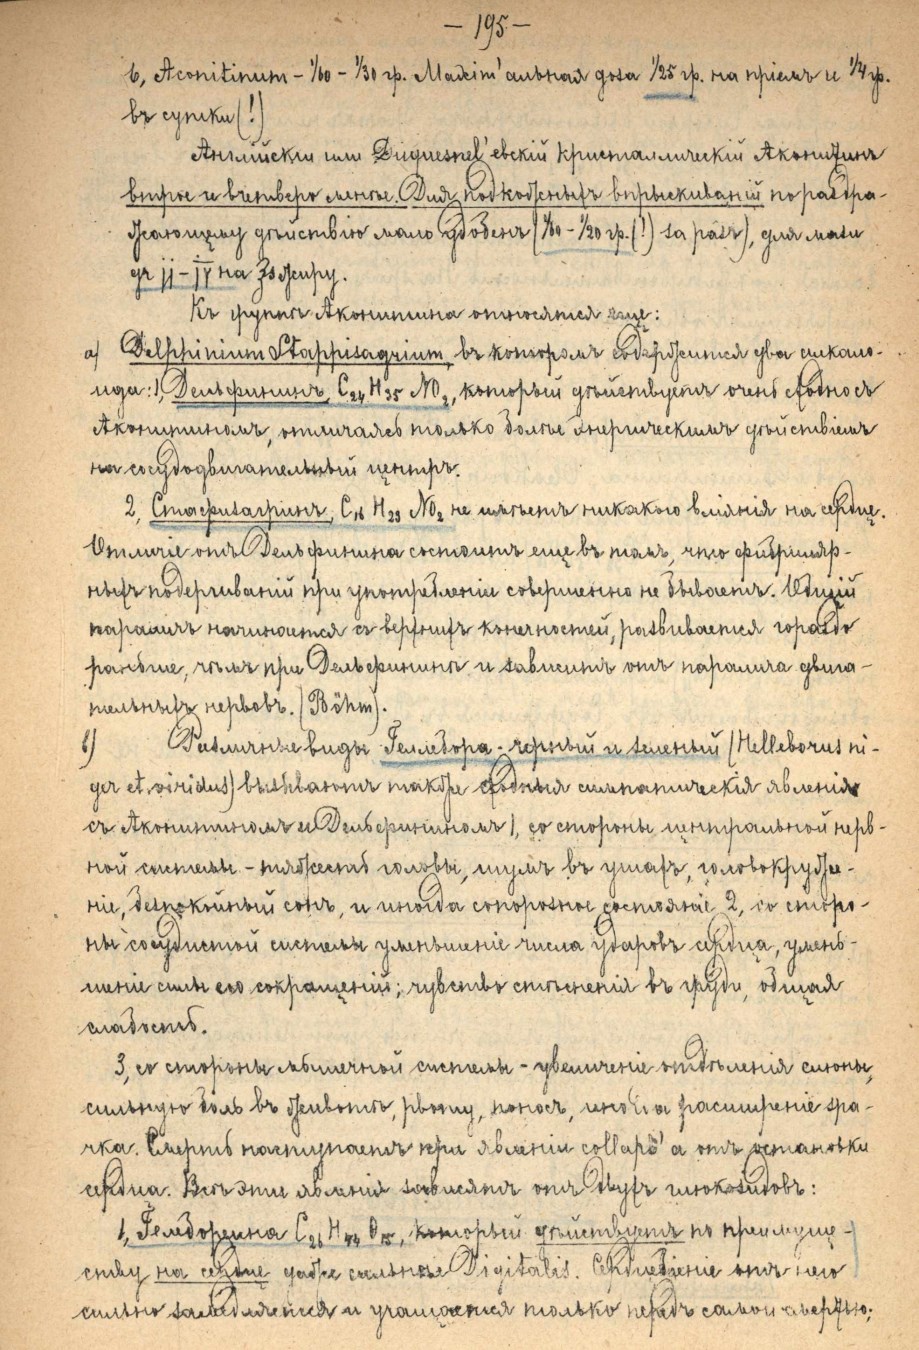 — 195 —
b, Aconitinum – 1/60 – 1/30 гр. Maxim'альная доза 1/25 гр. на прiемъ и 1/4 гр.
въ сутки (!)
Англiйскiй или Duquesnel'евскiй кристаллическiй Аконитинъ
втрое и вчетверо менѣе. Для подкожныхъ впрыскиванiй по раздра-
жающему дѣйствiю мало удобенъ (1/60 – 1/20 гр. (!) за разъ), для мази
gr jj – jv на ʒs жиру.
Къ группѣ Аконитина относятся еще:
a) Delphinium Staphisagrium, въ которомъ содержится два алкало-
ида: 1, Дельфининъ, C24 H35 NO2, который дѣйствуетъ очень сходно съ
Аконитиномъ, отличаясь только болѣе энергическимъ дѣйствiемъ
на сосудодвигательный центръ.
2, Стафизагринъ, C16 H23 NO2 не имѣетъ никакого влiянiя на сердце.
Отличiе отъ Дельфинина состоитъ еще въ томъ, что фибрилляр-
ныхъ подергиванiй при употребленiи совершенно не бываетъ. Общiй
параличъ начинается съ верхнихъ конечностей, развивается гораздо
раньше, чѣмъ при Дельфининѣ и зависитъ отъ паралича двига-
тельныхъ нервовъ. (Böhm).
b) Различные виды Геллебора - черный и зеленый (Helleborus ni-
ger et viridus) вызываютъ также сходныя симпатическiя явленiя
съ Аконитиномъ и Дельфининомъ 1, со стороны центральной нерв-
ной системы – тяжесть головы, шумъ въ ушахъ, головокруже-
нiе, безпокойный сонъ, и иногда сопорозное состоянiе 2, со сторо-
ны сосудистой системы уменьшенiе числа ударовъ сердца, умень-
шенiе силы его сокращенiй; чувство стѣсненiя въ груди, общая
слабость.
3, со стороны мышечной системы – увеличенiе отдѣленiя слюны,
сильную боль въ животѣ, рвоту, поносъ, иногда расширенiе зра-
чка. Смерть наступаетъ при явленiи collaps'а отъ остановки
сердца. Всѣ эти явленiя зависятъ отъ двухъ глюкозидовъ:
1, Гелебореина C26 H44 O15, который дѣйствуетъ по преимуще-
ству на сердце даже сильнѣе Digitalis. Сердцебiенiе отъ него
сильно замедляется и учащается только передъ самой смертью;